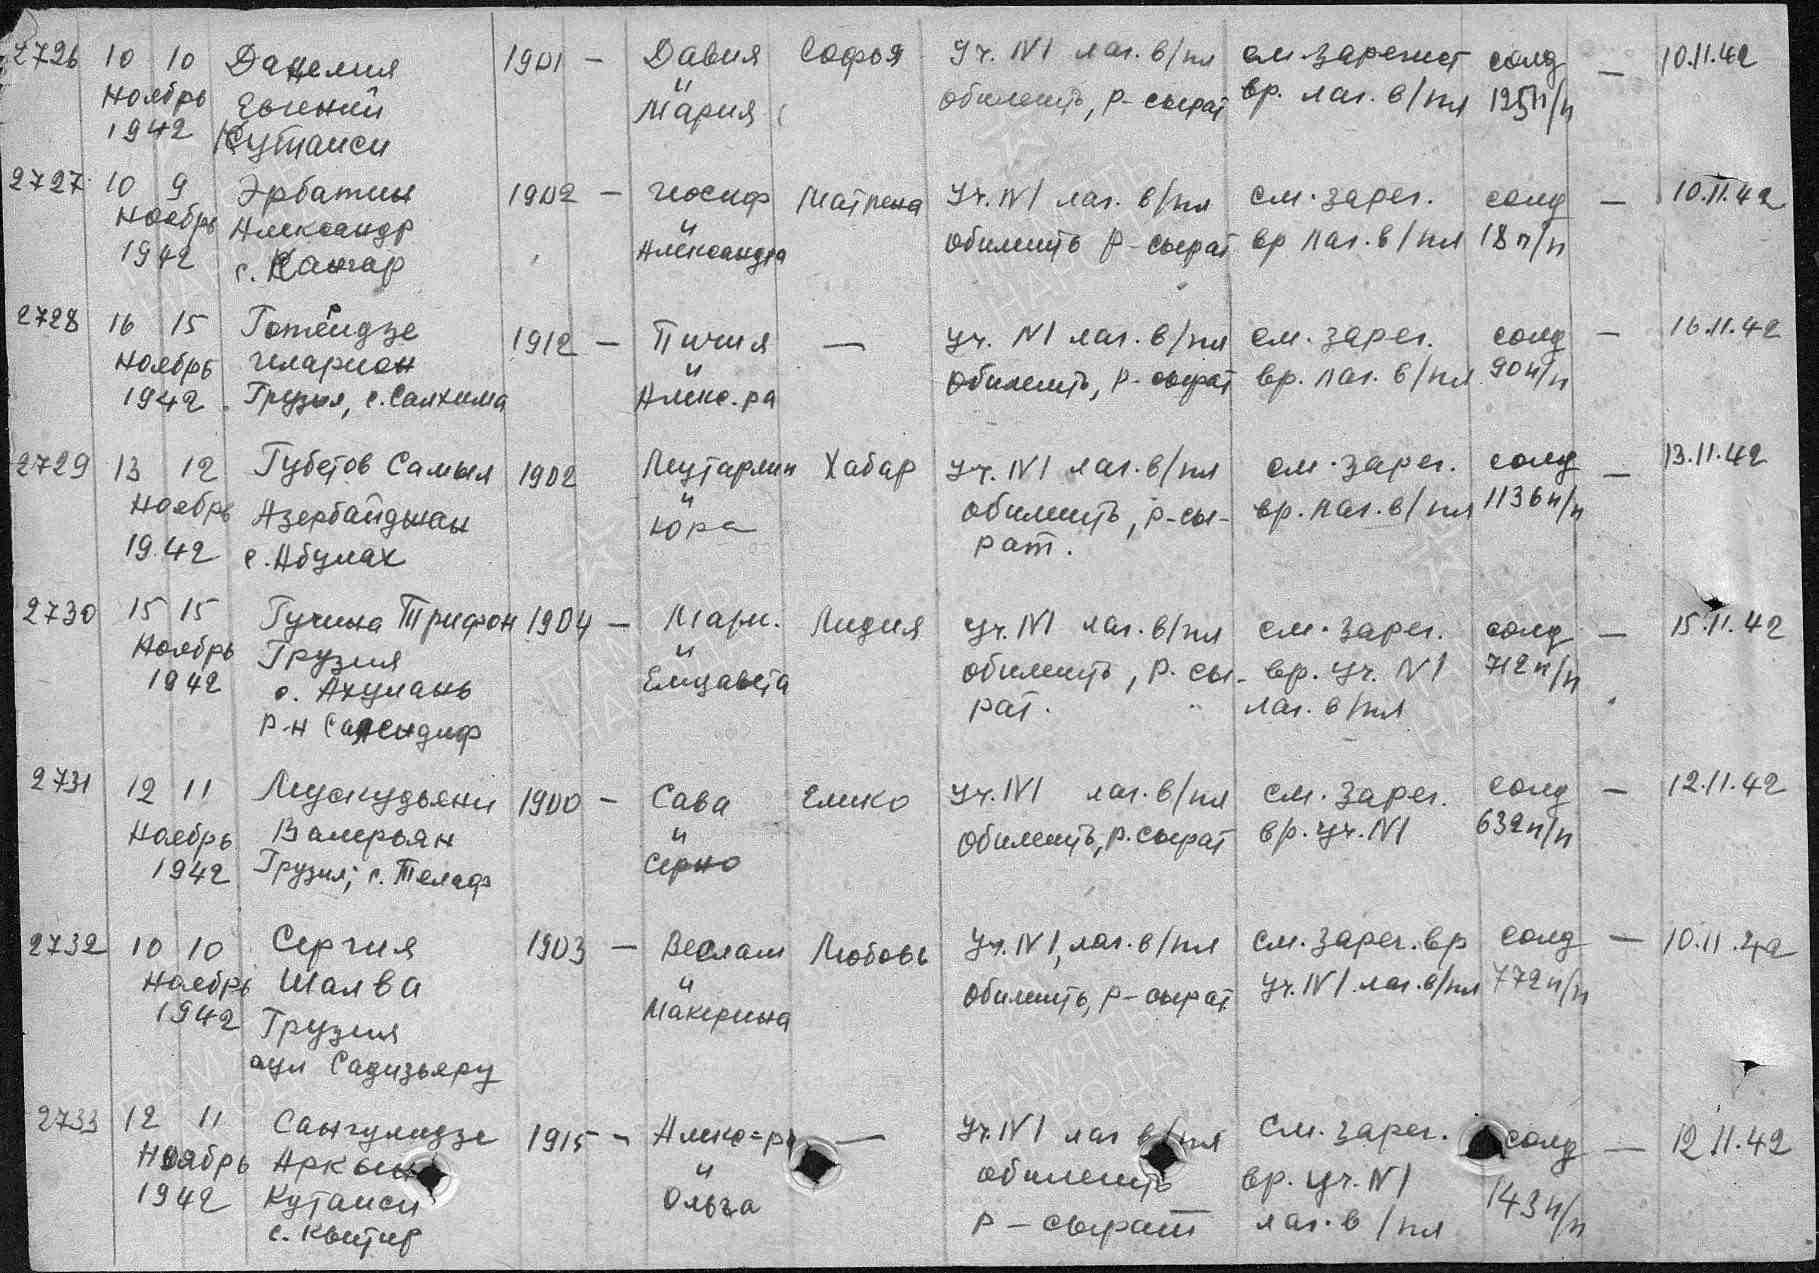 2726 10 10 Данелия 1901 — Давия Софья Уч. N1 лаг. в/пл см. зарегист солд — 10.11.42
Ноябрь Евгений и обилешть, р-сырат вр. лаг. в/пл 125 п/п
1942 Кутаиси Мария
2727 10 9 Эрбатин 1902 — Иосиф Матрена Уч. N1 лаг. в/пл см. зарег. солд — 10.11.42
Ноябрь Александр и обилешть р-сырат вр лаг. в/пл 18 п/п
1942 с. Кангар Александра
2728 16 15 1912 — Пичия — Уч. N1 лаг. в/пл см. зарег. солд — 16.11.42
Ноябрь Иларион и обилешть, р-сырат вр. лаг. в/пл 90 п/п
1942 Грузия, с. Салхима Алекс.ра
2729 13 12 Губетов Самыл 1902 Мутарлин Хабар Уч. N1 лаг. в/пл см. зарег. солд — 13.11.42
Ноябрь Азербайджан и обилешть, р-сы- вр. лаг. в/пл 1136 п/п
1942 с. Абулах Юра рат.
2730 15 15 Гучина Трифон 1904 — Марк. Лидия Уч. N1 лаг. в/пл см. зарег. солд — 15.11.42
Ноябрь Грузия и обилешть, р. сы- вр. уч. N1 712 п/п
1942 с. Ахулань Елизавета рат. лаг. в/пл
р-н
2731 12 11 Мускудьяни 1900 — Сава Елико Уч. N1 лаг. в/пл см. зарег. солд — 12.11.42
Ноябрь Валерьян и обилешть, р. сырат вр. уч. N1 632 п/п
1942 Грузия, с. Телаф Серно
2732 10 10 Сергия 1903 — Веслам Любовь Уч. N1, лаг. в/пл см. зарег. вр солд — 10.11.42
Ноябрь Шалва и обилешть, р-сырат уч. N1 лаг. в/пл 772 п/п
1942 Грузия Макрина
аул Садизьяру
2733 12 11 Сангулидзе 1915 — Алекс-р — Уч. N1 лаг в/пл см. зарег. солд — 12.11.42
Ноябрь и обилешть вр. уч. N1 143 п/п
1942 Кутаиси Ольга р-сырат лаг. в/пл
с. Квитир
ПАМЯТЬ НАРОДА